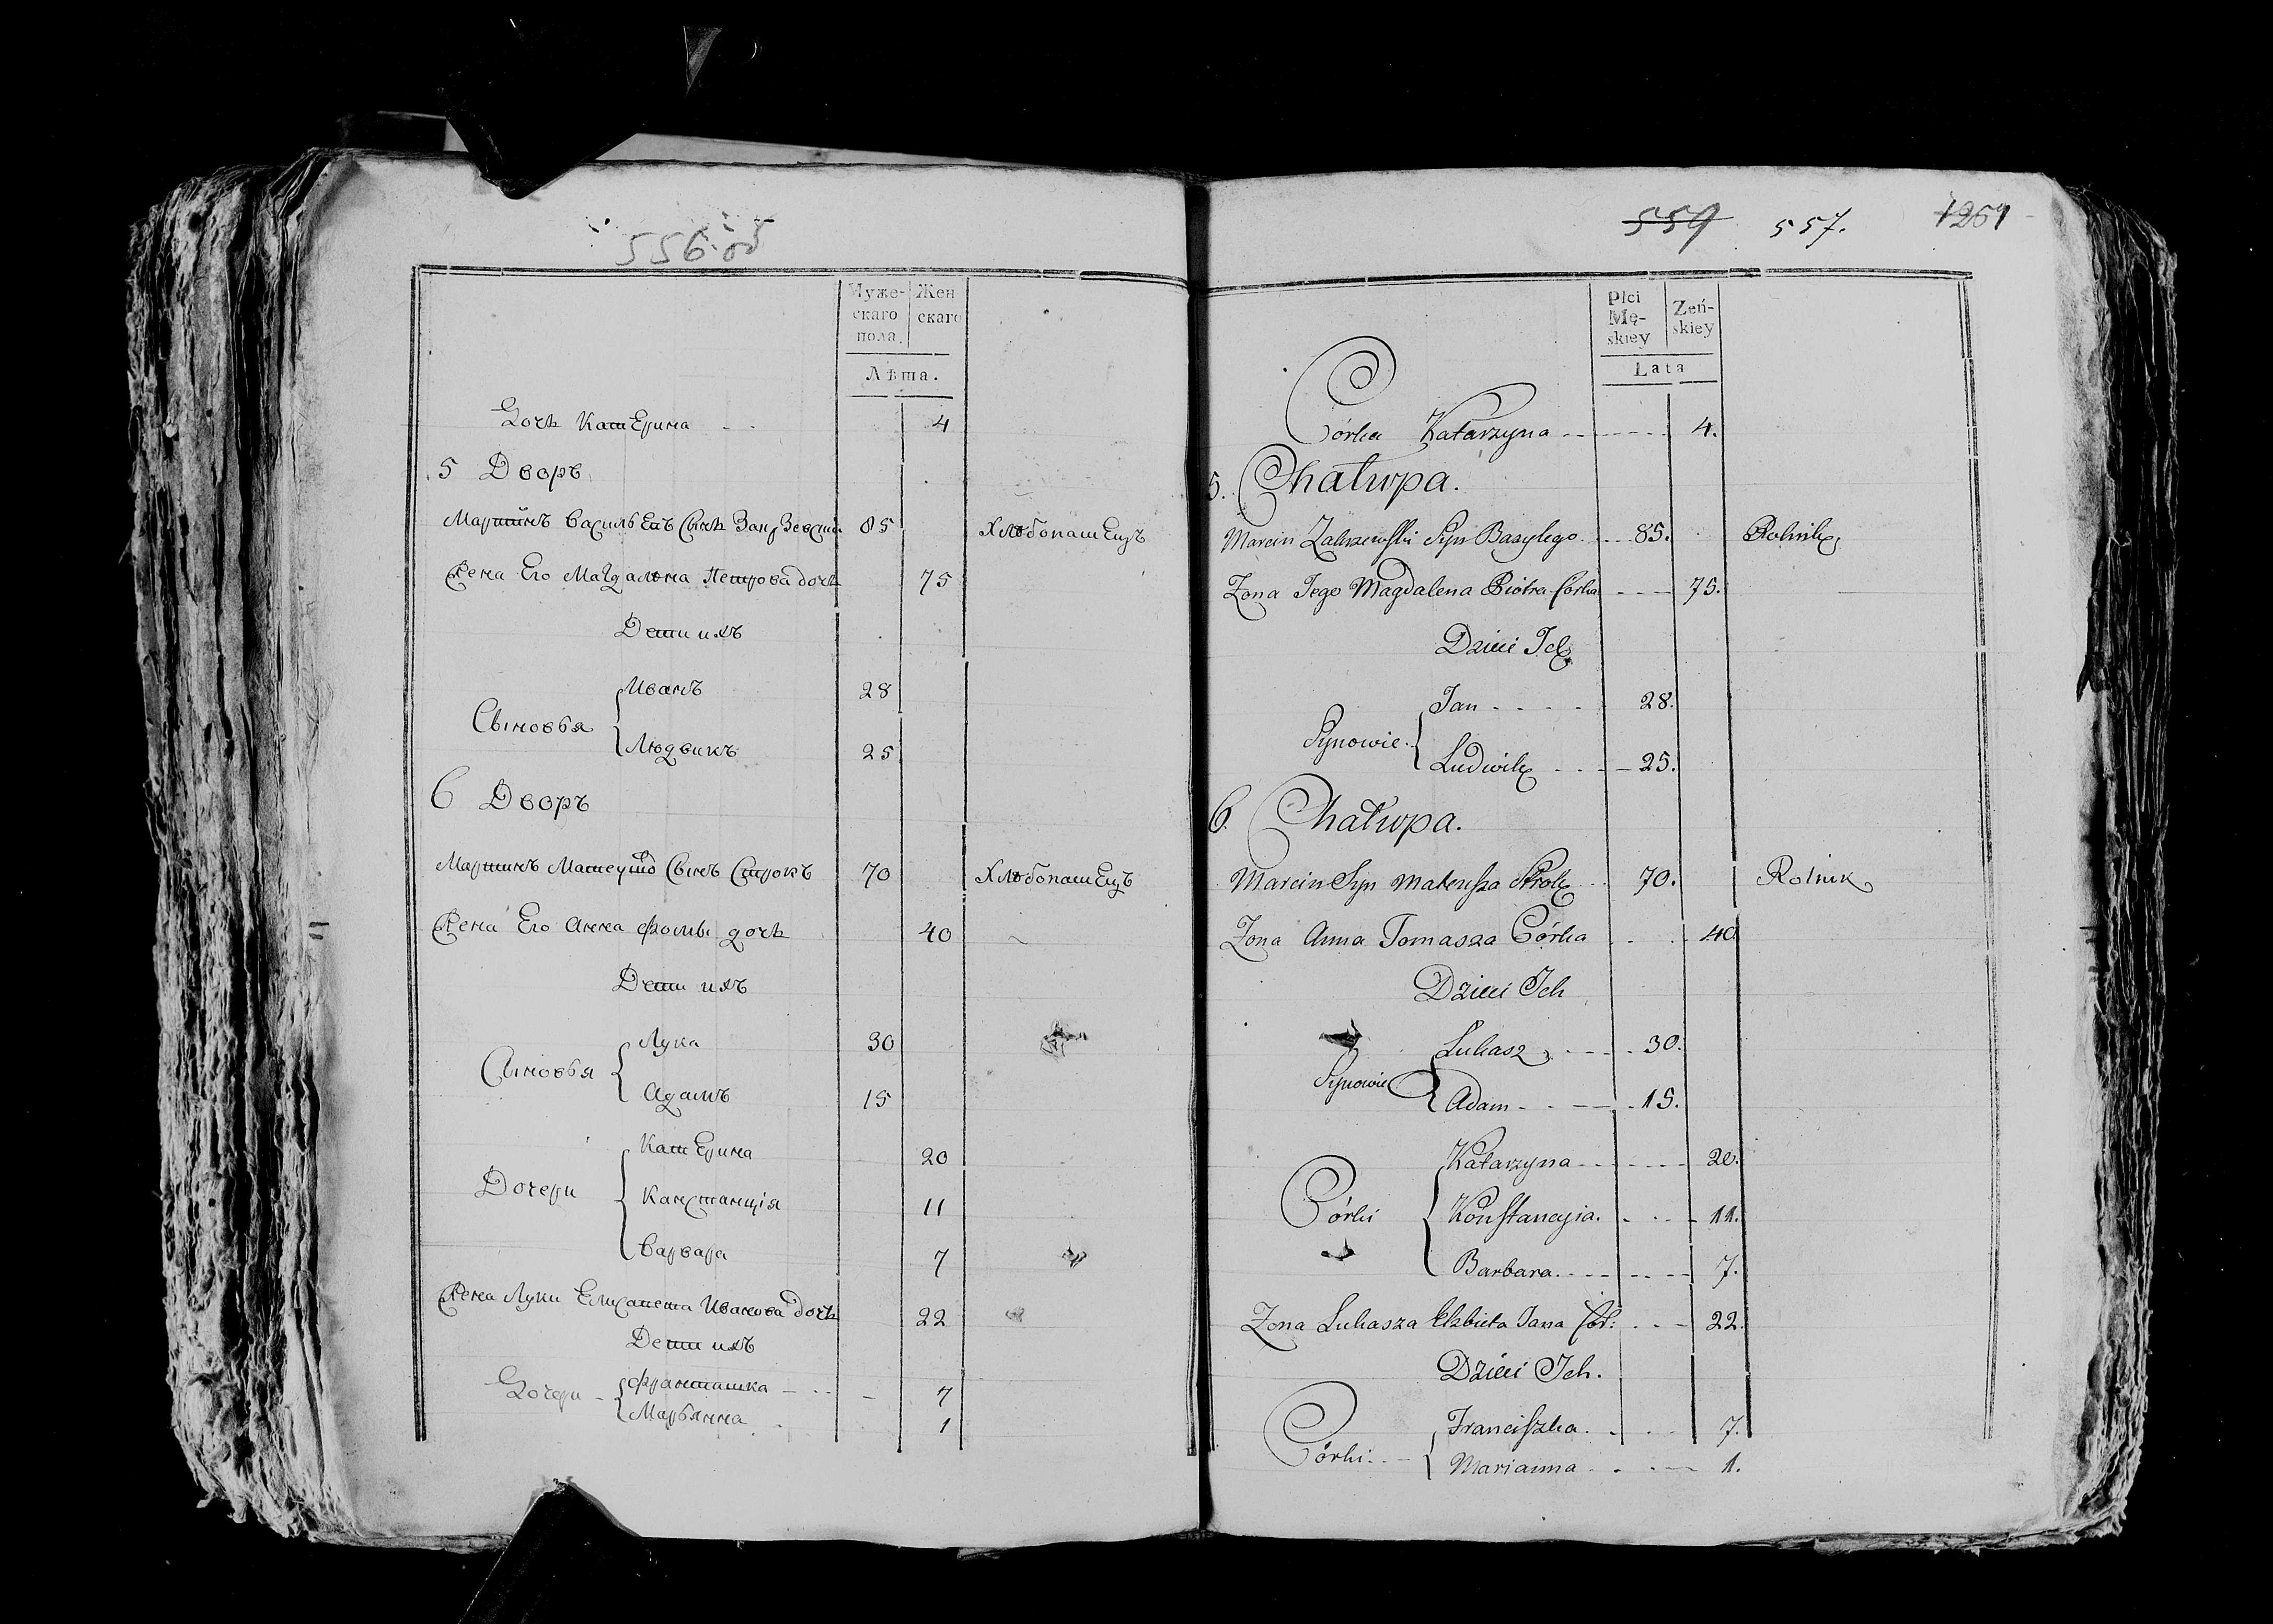 556 об
Муже-
скаго
пола.
Жен
скаго
Лѣта.
Дочь Катерина 4
5 Дворъ
Мартинъ Васильевъ Сынъ 85 Хлѣбопашецъ
Жена Его Магдалѣна Петрова дочь 75
Дети ихъ
Сыновья { Иванъ 28
Людвикъ 25
6 Дворъ
Мартинъ Сынъ Строкъ 70 Хлѣбопашецъ
Жена Его Анна Фомы дочь 40
Дети ихъ
Сыновья { Лука 30
Адамъ 15
Дочери { Катерина 20
Канстанція 11
Варвара 7
Жена Луки Елисапета Иванова Дочь 22
Дети ихъ
Дочери { 7
Марьянна 1
559 557. 1251
Płci
Mę-
skiey
Żeń-
skiey
Lata
Córka Katarzyna 4.
5. Chałupa.
Marcin Zakrzewski Syn Bazylego 85. Rolnik
Zona Jego Magdalena Piotra Córka 75.
Dzieci Ich
Synowie { Jan 28.
Ludwik 25.
6. Chałupa.
Marcin Syn Mateusza Strok 70. Rolnik
Zona Anna Tomasza Córka 40
Dzieci Ich
Synowie { Łukasz 30.
Adam 15.
Córki { Katarzyna 20.
Konstancyia. 11.
Barbara. 7.
Zona Łukasza Elzbieta Jana Cór: 22.
Dzieci Ich.
Córki { Franciszka. 7.
Marianna 1.